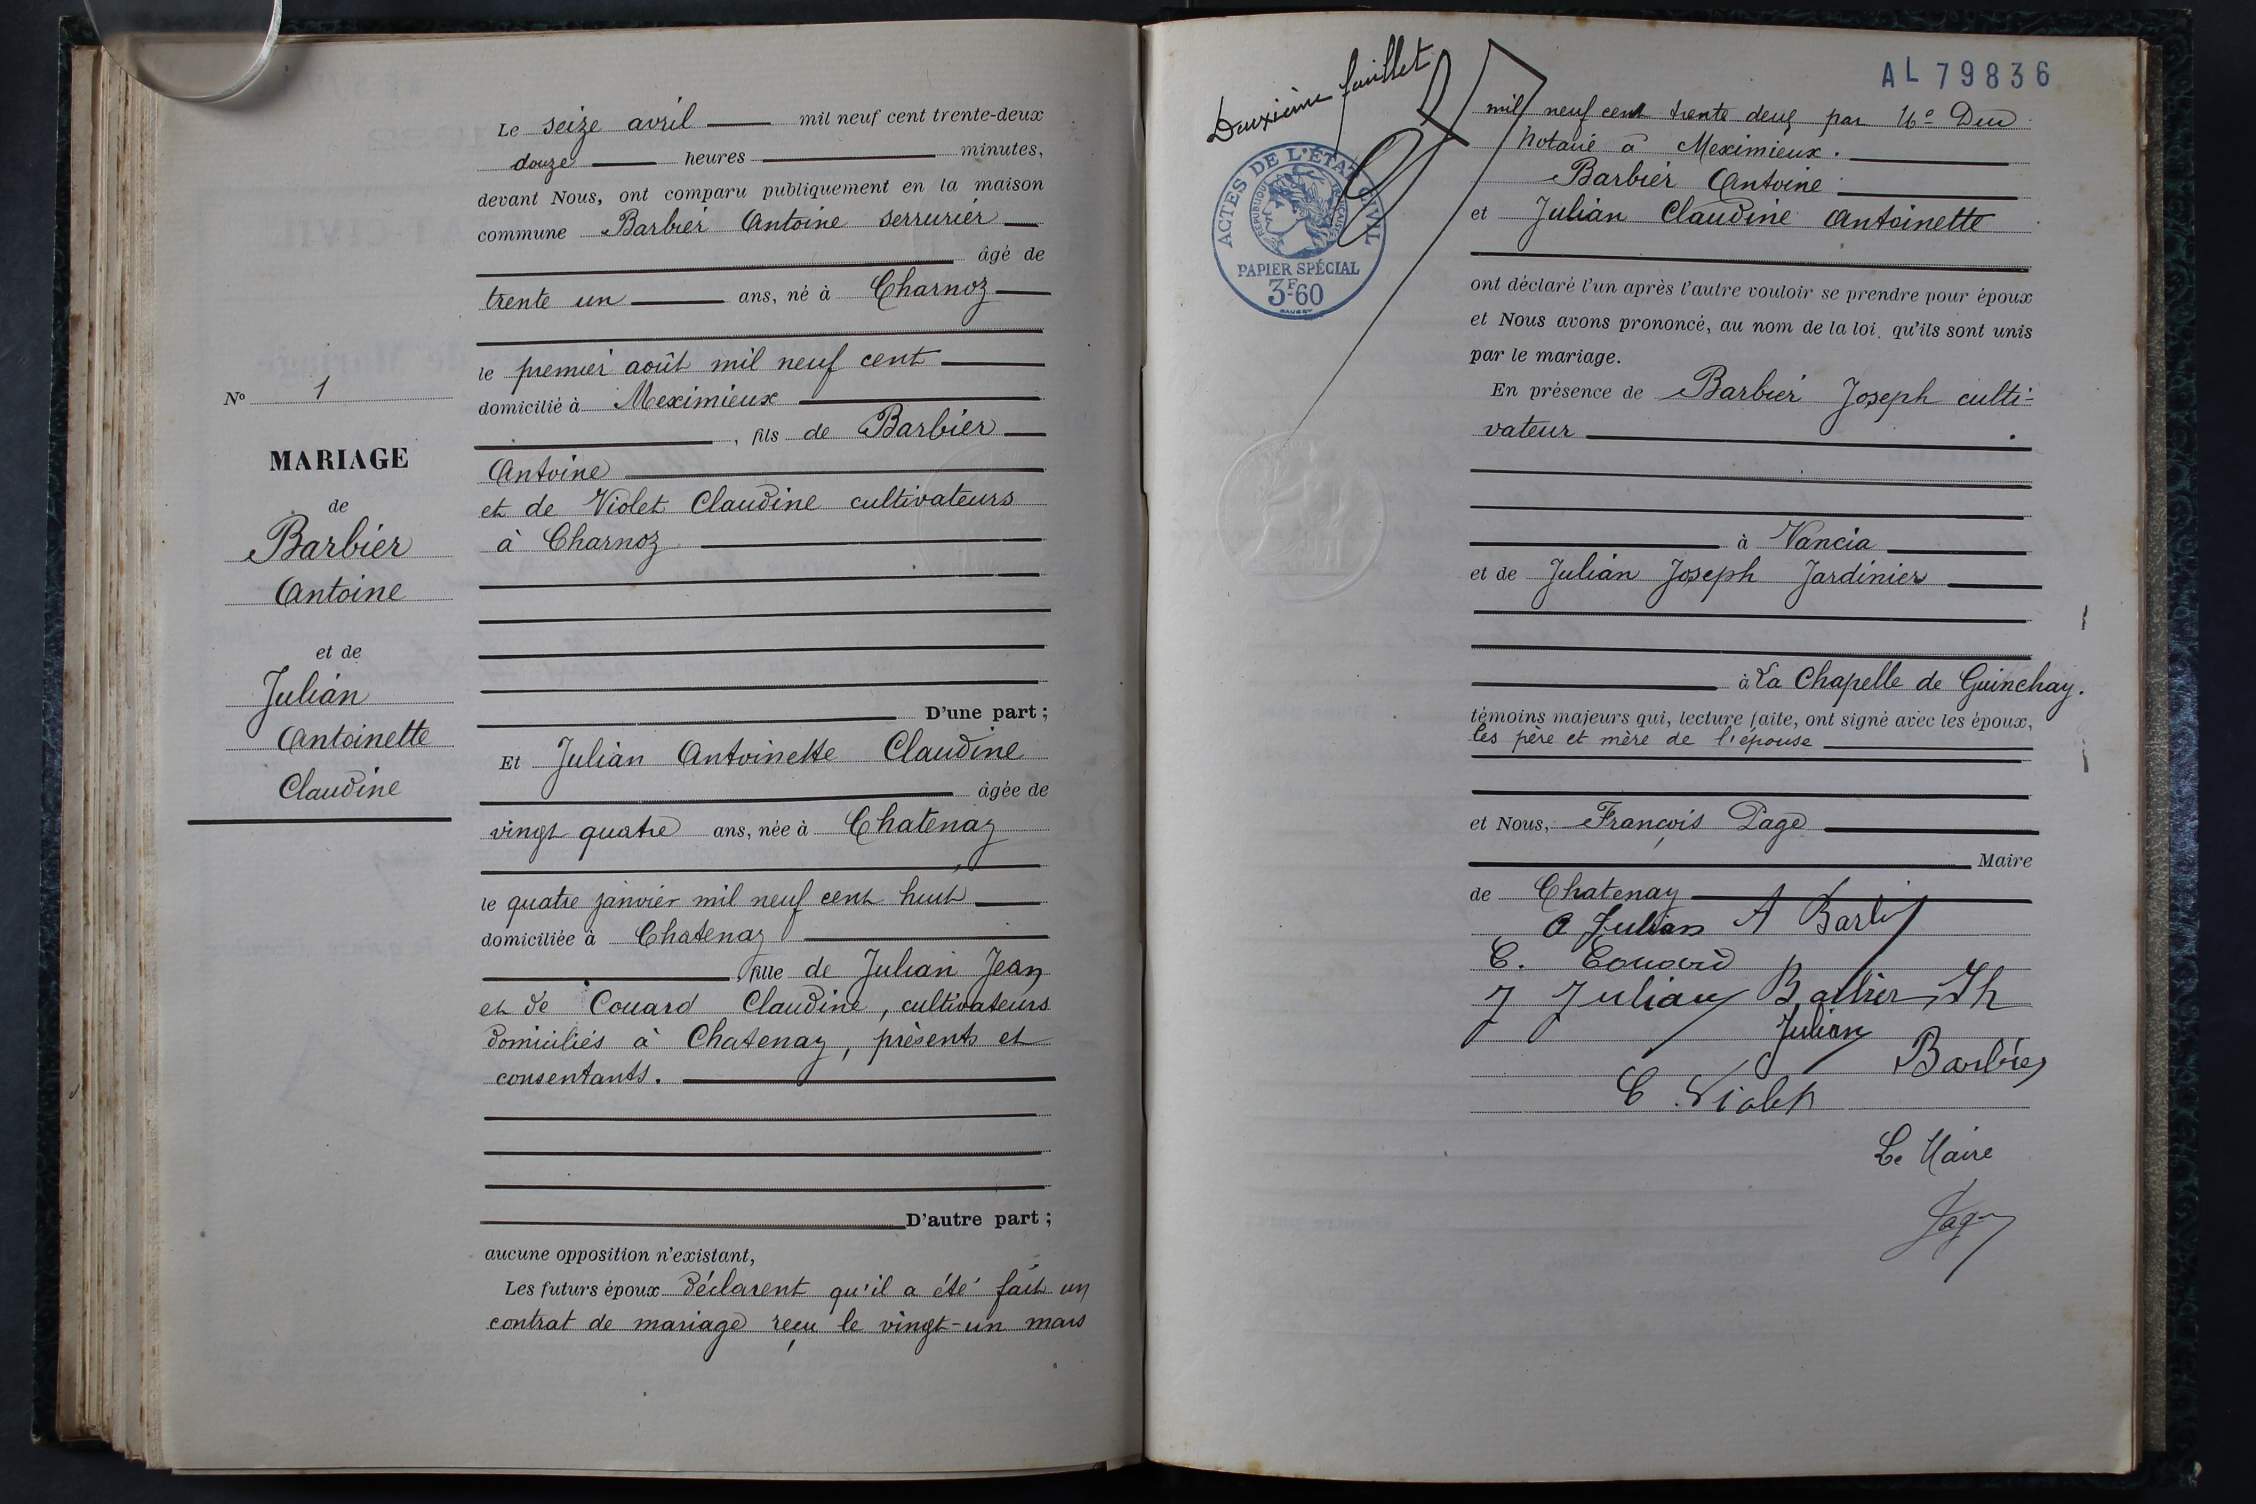 Le seize avril mil neuf cent trente-deux
douze heures minutes,
devant Nous, ont comparu publiquement en la maison
commune Barbier Antoine serrurier
âgé de
trente un ans, né à Charnoz
le premier août mil neuf cent
domicilié à Meximieux
, fils de Barbier
Antoine
et de Violet Claudine cultivateurs
à Charnoz
D'une part ;
Et Julian Antoinette Claudine
âgée de
vingt quatre ans, née à Chatenay
le quatre janvier mil neuf cent huit
domiciliée à Chatenay
, fille de Julian Jean
et de Couard Claudine, cultivateurs
domiciliés à Chatenay, présents et
consentants.
D'autre part ;
aucune opposition n'existant,
Les futurs époux déclarent qu'il a été fait un
contrat de mariage reçu le vingt-un mars
No 1
MARIAGE
de
Barbier
Antoine
et de
Julian
Antoinette
Claudine
Deuxième feuillet
ACTES DE L'ÉTAT CIVIL
RÉPUBLIQUE FRANÇAISE
PAPIER SPÉCIAL
3F-60
AL 79836
mil neuf cent trente deux par Me
Notaire à Meximieux.
Barbier Antoine
et Julian Claudine Antoinette
ont déclaré l'un après l'autre vouloir se prendre pour époux
et Nous avons prononcé, au nom de la loi, qu'ils sont unis
par le mariage.
En présence de Barbier Joseph culti-
vateur
à Vancia
et de Julian Joseph Jardinier
à La Chapelle de Guinchay.
témoins majeurs qui, lecture faite, ont signé avec les époux,
les père et mère de l'épouse
et Nous, François Page
Maire
de Chatenay
A Julian A Barbier
C. Couard
J Julian Barbier Jh
Julian
Barbier
C Violet
Le Maire
Page